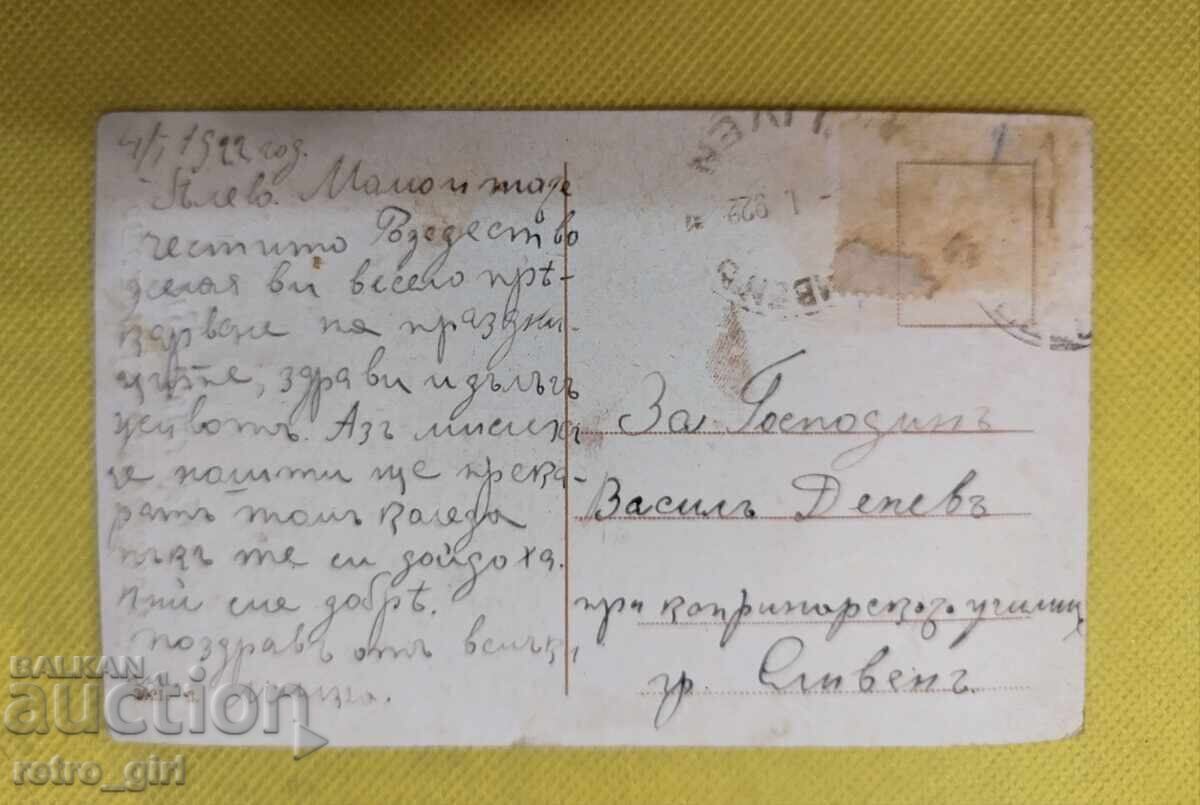 4/I 1922 год.
Мамо и тате
честито Рождество
желая ви весело прѣ-
карване на праздни-
цитѣ, здрави и дълъгъ
животъ. Азъ мислехъ
че нашти ще прека-
ратъ тамъ коледа
пъкъ те си дойдоха.
Ний сме добрѣ.
Поздравъ отъ всички
ЛИВЕН
1.922
За Господинъ
Василъ Деневъ
при копринарско училищ
гр. Сливенъ
BALKAN
auction
retro_girl